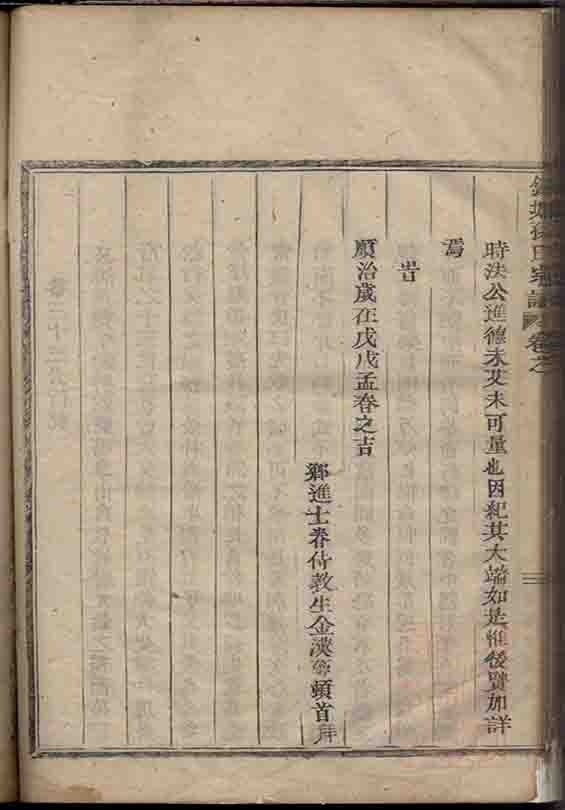 時法公進德未艾未可量也因紀其大端如是惟後賢加詳
焉
旹
順治歲在戊戌孟春之吉
鄉進士眷侍教生金漢等頓首拜
氏宗譜 卷之